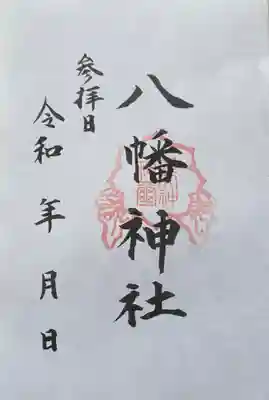 八幡神社
参拝日
令和 年 月 日